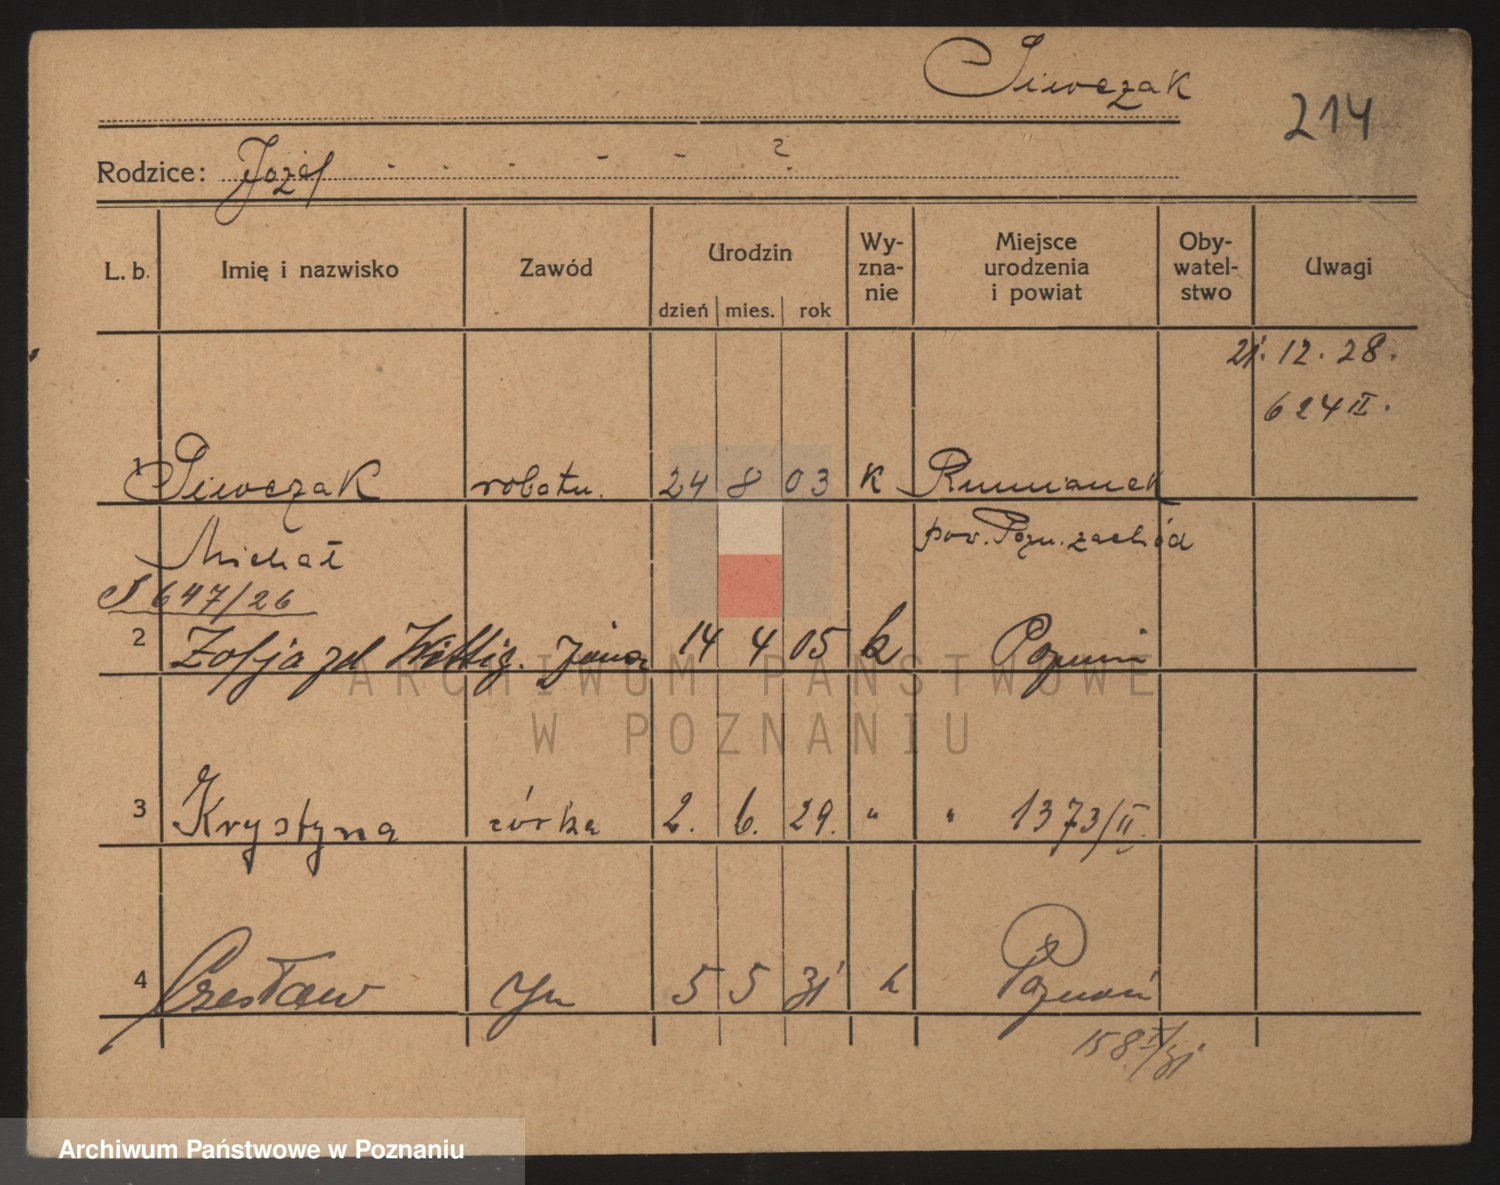 Siewczak
214
Rodzice: Józef - - - - - ?
L. b. Imię i nazwisko Zawód Urodzin dzień mies. rok Wy-zna-nie Miejsce urodzenia i powiat Oby-watel-stwo Uwagi
21.12.28.
624 II.
1 Siewczak robotn. 24 8 03 K Rumianek
Michał pow. Pozn. zachód
647/26
2 Zofja zd Wittig. 14 4 05 k Poznań
3 Krystyna córka 2. 6. 29. " " 1373/II.
4 Czesław syn 5 5 31 k Poznań
158 I/31
ARCHIWUM PAŃSTWOWE
W POZNANIU
Archiwum Państwowe w Poznaniu